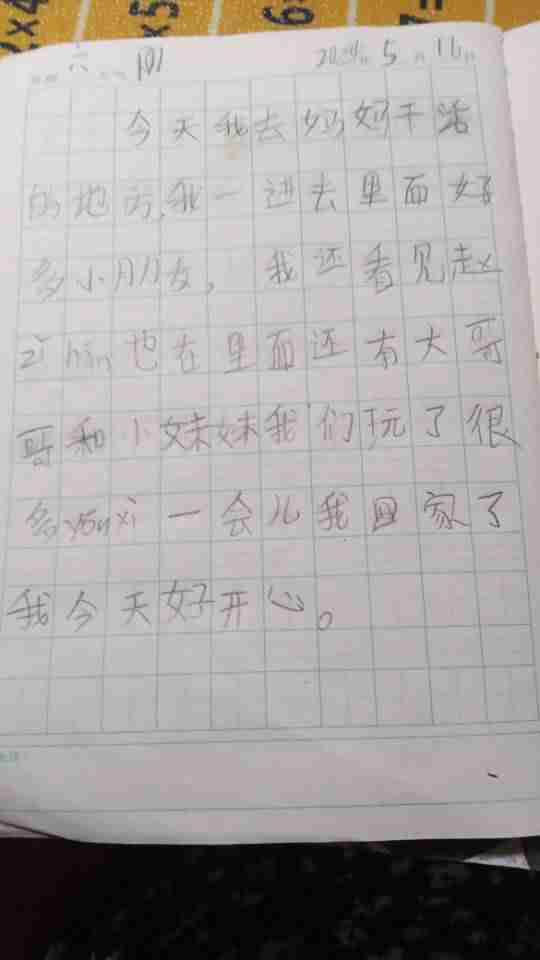 六 刚 2020年5月16日
今天我去妈妈干活
的地方,我一进去里面好
多小朋友,我还看见赵
zǐ hán也在里面还有大哥
哥和小妹妹我们玩了很
多yóu xì一会儿我回家了
我今天好开心。